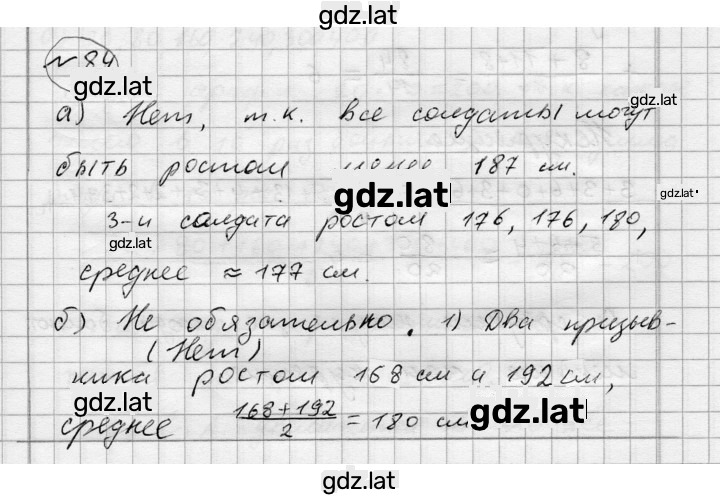 gdz.lat
№ 84
gdz.lat
а) Нет, т.к. все солдаты могут
gdz.lat
быть ростом менее 187 см.
gdz.lat
gdz.lat
3-и солдата ростом 176, 176, 180,
gdz.lat
среднее ≈ 177 см.
б) Не обязательно. 1) Два призыв-
(Нет)
ника ростом 168 см и 192 см,
gdz.lat
среднее (168+192)/2 = 180 см
gdz.lat
gdz.lat